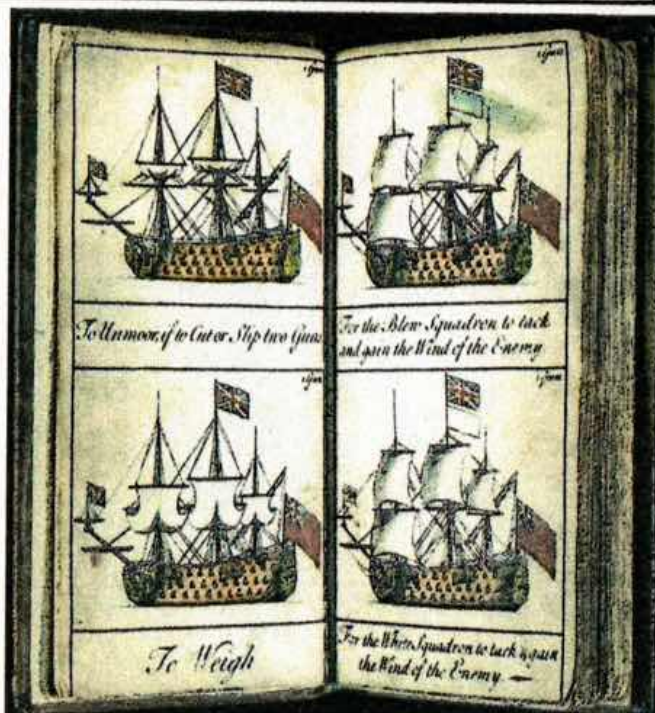 1 Gun
To Unmoor, if to Cut or Slip two Guns
1 Gun
To Weigh
1 Gun
For the Blew Squadron to tack
and gain the Wind of the Enemy
1 Gun
For the White Squadron to tack & gain
the Wind of the Enemy.